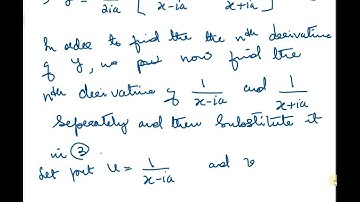 y = 1/2ia [ 1/x-ia 1/x+ia ]
In order to find the the nth derivative
of y, we past now find the
nth derivative of 1/x-ia and 1/x+ia
Seperately and then Substitute it
in ③.
Let part u = 1/x-ia ad v